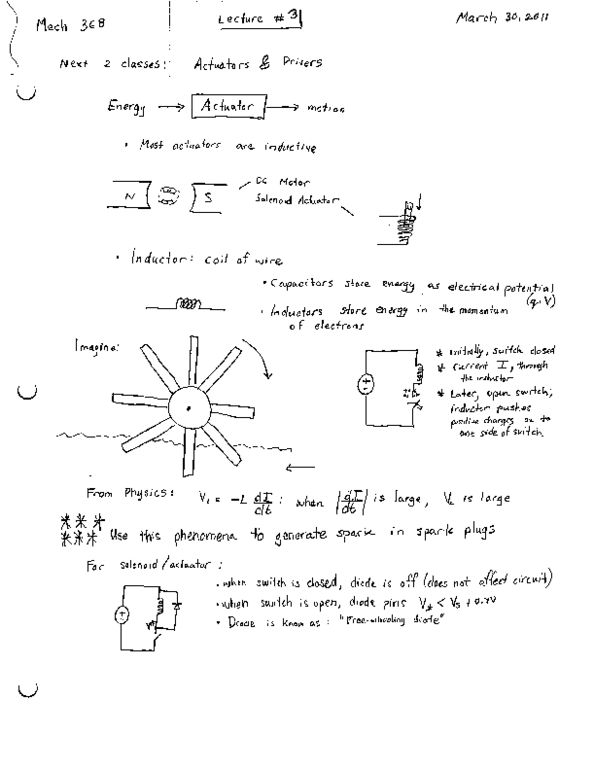 Mech 368
Lecture #31
March 30, 2011
Next 2 classes: Actuators & Drivers
Energy → Actuator → motion
• Most actuators are inductive
N S
DC Motor
Solenoid Actuator
• Inductor: coil of wire
• Capacitors store energy as electrical potential
(q.V)
• Inductors store energy in the momentum
of electrons
Imagine:
* initially, switch closed
* current I, through
the inductor
* Later, open switch;
inductor pushes
positive charges on to
one side of switch.
From Physics: V_L = -L dI/dt : when |dI/dt| is large, V_L is large
*** Use this phenomena to generate spark in spark plugs
***
For solenoid/actuator:
• when switch is closed, diode is off (does not affect circuit)
• when switch is open, diode pins V* < Vs + 0.7V
• Diode is know as: "Free-wheeling diode"
V*